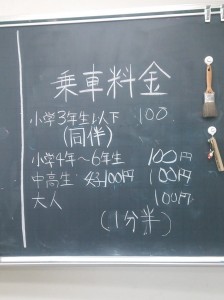 乗車料金
小学3年生以下 100
(同伴)
小学4年〜6年生 100円
中高生 100円 100円
大人 100円
(1分半)